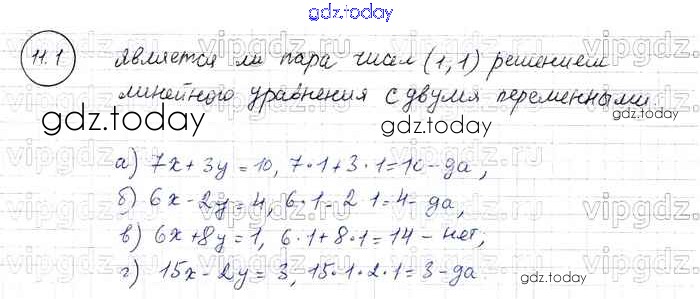 gdz.today
11.1 является ли пара чисел (1,1) решением
линейного уравнения с двумя переменными
gdz.today gdz.today
а) 7x+3y=10, 7·1+3·1=10-да,
б) 6x-2y=4, 6·1-2 1=4-да,
в) 6x+8y=1, 6·1+8·1=14-нет;
г) 15x-2y=3, 15·1·2·1=3-да
gdz.today